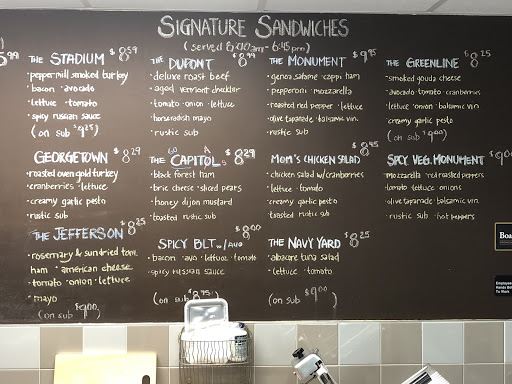 SIGNATURE SANDWICHES
(served 8:00am - 6:45pm)
THE STADIUM $8.59
• peppermill smoked turkey
• bacon • avocado
• lettuce • tomato
• spicy russian sauce
(on sub $9.25)
THE DUPONT $8.99
• deluxe roast beef
• aged vermont cheddar
• tomato • onion • lettuce
• horseradish mayo
• rustic sub
THE MONUMENT $9.95
• genoa salame • cappi ham
• pepperoni • mozzarella
• roasted red pepper • lettuce
• olive tapanade • balsamic vin.
• rustic sub
THE GREENLINE $8.25
• smoked gouda cheese
• avocado • cranberries • tomato
• lettuce • onion • balsamic vin
• creamy garlic pesto
(on sub $9.00)
GEORGETOWN $8.29
• roasted oven gold turkey
• cranberries • lettuce
• creamy garlic pesto
• rustic sub
THE GO CAPITOLS $8.29
• black forest ham
• brie cheese • sliced pears
• honey dijon mustard
• toasted rustic sub
MOM'S CHICKEN SALAD $8.95
• chicken salad w/cranberries
• lettuce • tomato
• creamy garlic pesto
• toasted rustic sub
SPICY VEG. MONUMENT $9.00
• mozzarella • red roasted peppers
• tomato lettuce onions
• olive tapanade • balsamic vin.
• rustic sub • hot peppers
THE JEFFERSON $8.25
• rosemary & sundried tom.
ham • american cheese
• tomato • onion • lettuce
• mayo
(on sub $9.00)
SPICY BLT w/AVO $8.00
• bacon • avo • lettuce • tomato
• spicy russian sauce
(on sub $8.75)
THE NAVY YARD $8.25
• albacore tuna salad
• lettuce • tomato
(on sub $9.00)
Boa
Employee
Hands Be
To Work